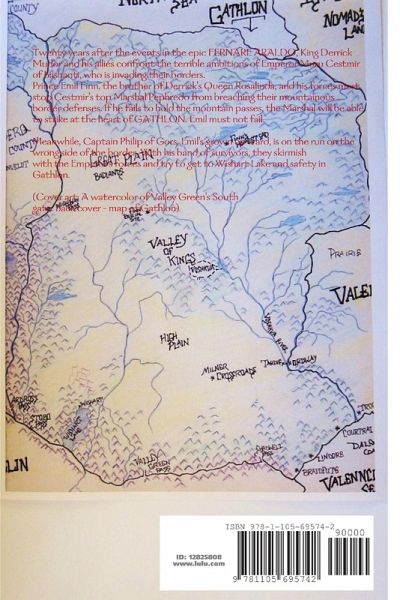 COUNTY
SEA
GATHLON
NOMAD'S
LAN
Twenty years after the events in the epic FERNARE ARALDO, King Derrick
and his allies confront the terrible ambitions of Emperor
of who is invading their borders.
Prince Emil Finn, the brother of Derrick's Queen Rosalinda, and his forces must
stop Cestmir's top Marshal from breaching their mountainous
border defenses. If he fails to hold the mountain passes, the Marshal will be able
to strike at the heart of GATHLON. Emil must not fail.
Meanwhile, Captain Philip of Gors, Emil's grown ward, is on the run on the
wrong side of the border. With his band of survivors, they skirmish
with the Emperor's forces and try to get to Wishart Lake and safety in
Gathlon.
(Cover art: A watercolor of Valley Green's South
gate. Back cover - map of Gathlon)
COUNTY
GREAT PLAIN
BADLANDS
VALLEY
OF
KINGS
PRAIRIE
VALE
HIGH
PLAIN
MILNER
CROSSROADS
ORDWAY
PASS
STOBO
PASS
WISHART
LAKE
LIN
VALLEY
GREEN
PASS
PASS
COURTRAI
LINCORE
BRAIDFUTS
VALENN
ISBN 978-1-105-69574-2
90000
ID: 12825808
www.lulu.com
9 781105 695742